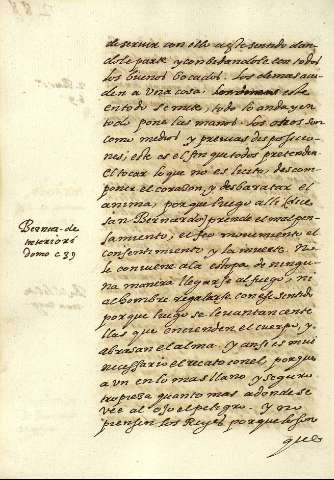 de seruir con ello a este sentido dan
dole parte y conbidandole con todos
los buenos bocados. los demas acu
den a vna cosa; este
en todo se mete; todo lo anda y en
todo pone las manos. los otros son
como medios y preuias disposicio
nes; este es el fin que todos pretenden
El tocar lo que no es licito, descom
poner el corazon, y desbaratar el
anima, porque luego alli (dice
san Bernardo) prende el mal pen
samiento, el feo mouimiento el
consentimiento y la muerte. No
le conuiene a la estopa de ningu
na manera llegarse al fuego, ni
al hombre regalarse con este sentido
porque luego se leuantan cente
llas que encienden el cuerpo, y
abrasan el alma. Y ansi es mui
necessario el recato con el, porque
a vn en lo mas llano y seguro
tropieza quanto mas adonde se
vee al ojo el peligro. Y no
piensen los Reyes porque lo son
que
Bernar. de
interiori
domo c 39